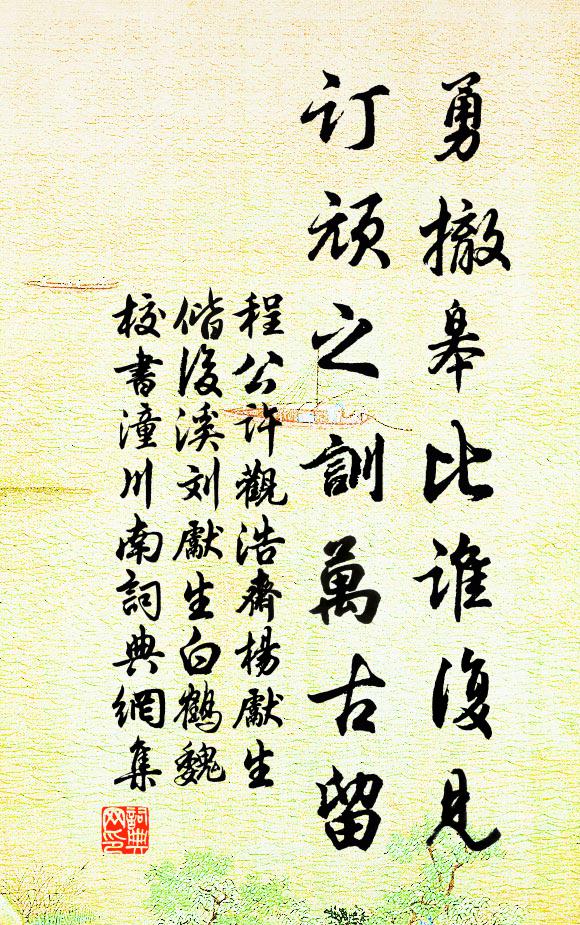 勇撤皋比谁復見
订顽之訓萬古留
程公许觀浩齋楊獻生
偕後溪刘獻生白鶴魏
校書潼川南詞典網集
詞典网印